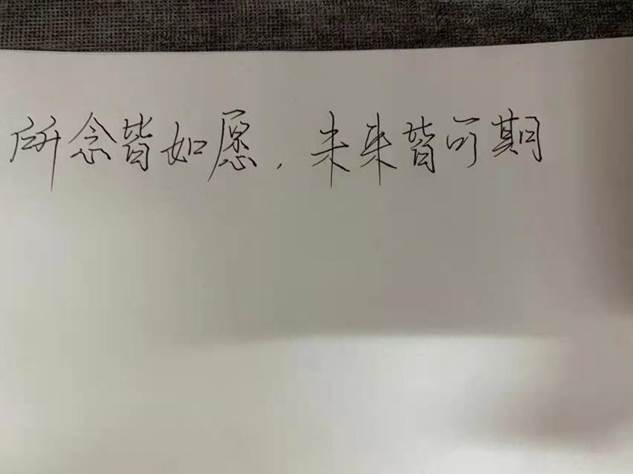 所念皆如愿，未来皆可期